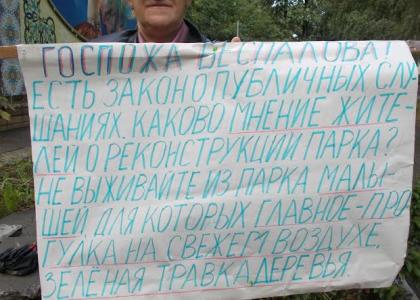 ГОСПОЖА БЕСПАЛОВА!
ЕСТЬ ЗАКОН О ПУБЛИЧНЫХ СЛУ-
ШАНИЯХ. КАКОВО МНЕНИЕ ЖИТЕ-
ЛЕЙ О РЕКОНСТРУКЦИИ ПАРКА?
НЕ ВЫЖИВАЙТЕ ИЗ ПАРКА МАЛЫ-
ШЕЙ, ДЛЯ КОТОРЫХ ГЛАВНОЕ-ПРО-
ГУЛКА НА СВЕЖЕМ ВОЗДУХЕ,
ЗЕЛЁНАЯ ТРАВКА, ДЕРЕВЬЯ.